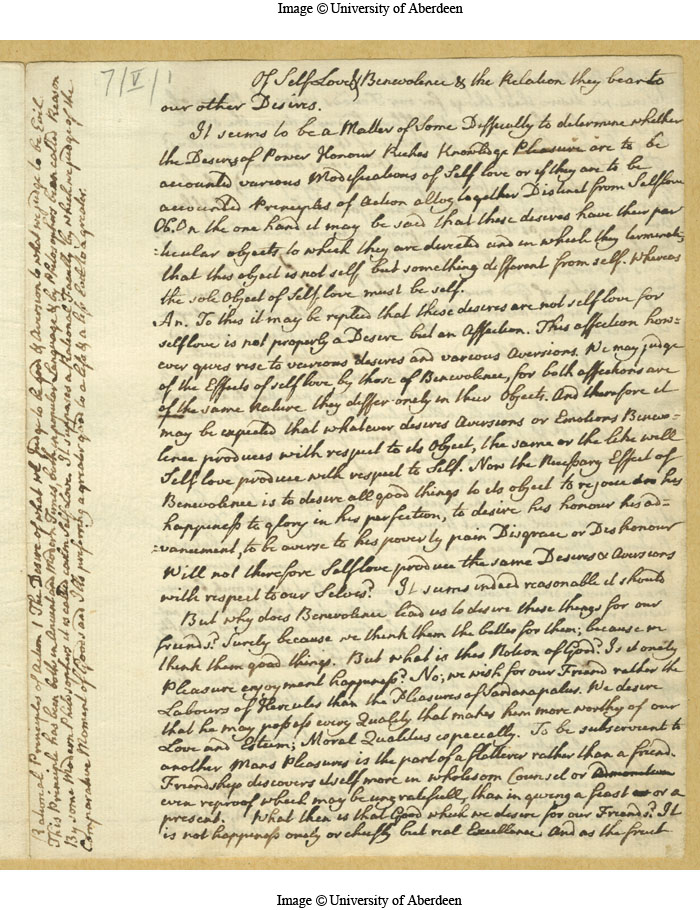 Image © University of Aberdeen
7/V/1
Of Self Love & Benevolence & the Relation they bear to
our other Desires.
It seems to be a Matter of Some Difficulty to determine whether
the Desires of Power Honour Riches Knowledge Pleasure are to be
accounted various Modifications of Self love or if they are to be
accounted Principles of Action altogether Distinct from Selflove
Ob. On the one hand it may be said that these desires have their par
ticular objects to which they are directed and in which they terminate,
that this object is not self but something different from self. Whereas
the sole Object of Self love must be self.
An. To this it may be replied that these desires are not self love for
selflove is not properly a Desire but an Affection. This affection how=
ever gives rise to various desires and various Aversions. We may judge
of the Effects of self love by those of Benevolence, for both affections are
of the same Nature they differ onely in their Objects. And therefore it
may be expected that whatever desires Aversions or Emotions Benevo=
lence produces with respect to its Object, the same or the like will
Self love produce with respect to Self. Now the Necessary Effect of
Benevolence is to desire all good things to its object to rejoice in his
happiness to glory in his perfection, to desire his honour his ad=
=vancement, to be averse to his poverty pain Disgrace or Dishonour
Will not therefore Selflove produce the same Desires & Aversions
with respect to our Selves? It seems indeed reasonable it should
But why does Benevolence lead us to desire these things for our
friends? Surely because we think them the better for them; because we
think them good things. But what is this Notion of Good? Is it onely
Pleasure enjoyment happiness? No; we wish for our Friend rather the
Labours of Hercules than the Pleasures of Sardanapalus. We desire
that he may possess every Quality that makes him more worthy of our
Love and Esteem; Moral Qualities especially. To be subservient to
another Mans Pleasures is the part of a flatterer rather than a friend.
Friendship discovers itself more in wholesom Counsel or
even reproof which may be ungratefull, than in giving a feast or a
present. What then is that Good which we desire for our Friends? It
is not happiness onely or chiefly but real Excellence And as the fruit
Rational Principles of Action 1 The Desire of what we judge to be good & Aversion to what we judge to be Evil
This Principle has been both in Ancient and Modern Times, both in popular Language & by Philosophers been called Reason
By some Modern Philosophers it is called calm Self Love. It supposes a Rational Faculty by which we judge of the
Comparative Moment of Goods and Ills preferring a greater good to a less & a less Evil to a greater.
Image © University of Aberdeen